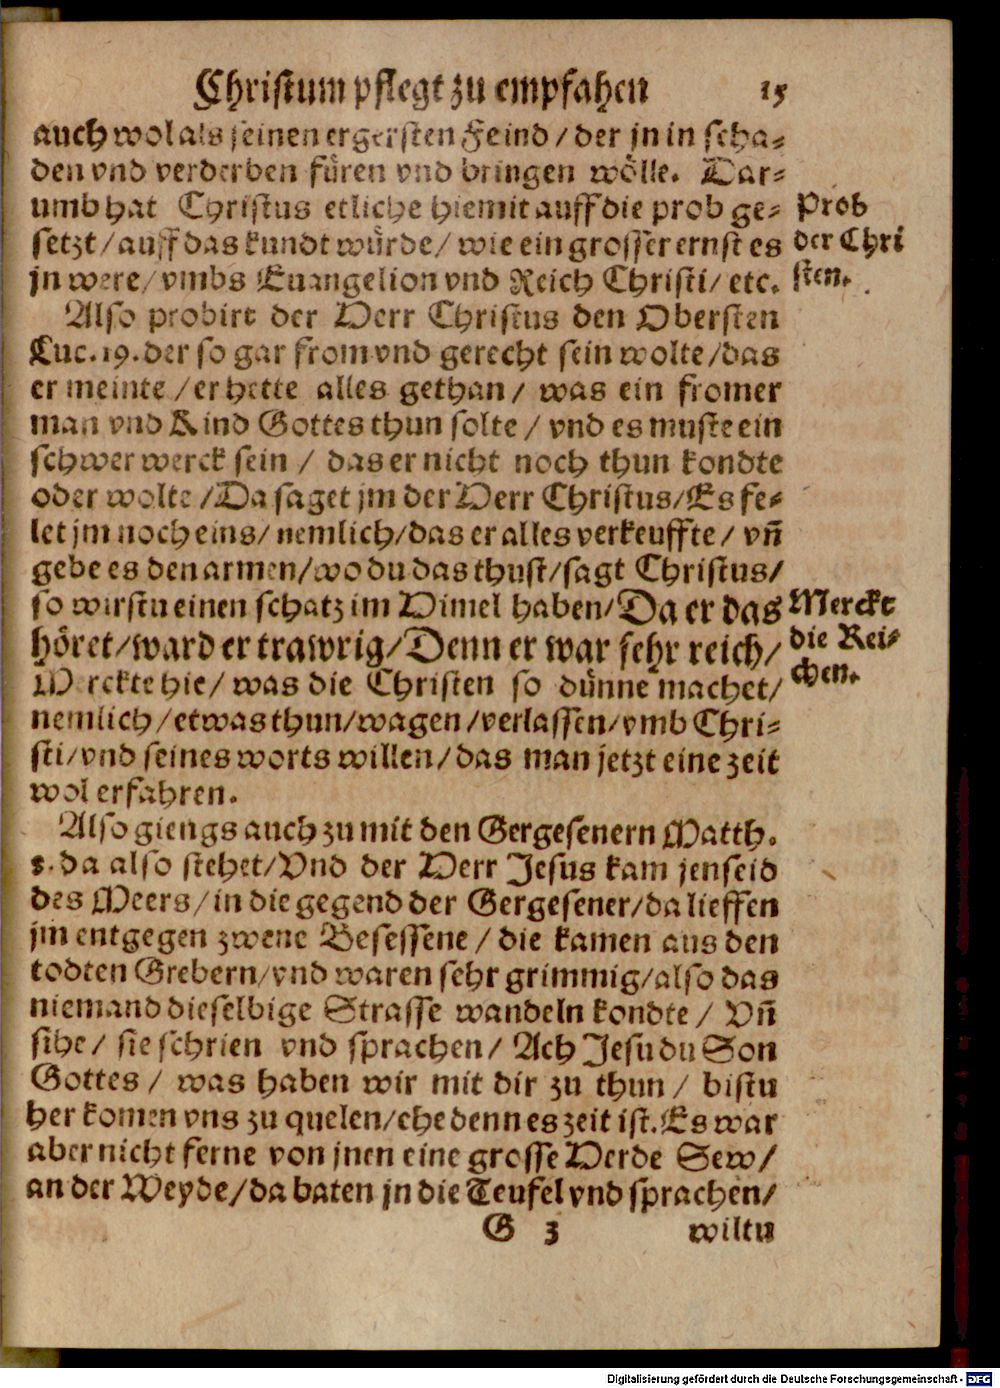 Christum pflegt zu empfahen 15
auch wol als seinen ergersten Feind / der jn in scha-
den vnd verderben füren vnd bringen wölle. Dar-
umb hat Christus etliche hiemit auff die prob ge-
setzt / auff das kundt würde / wie ein grosser ernst es
jn were / vmbs Euangelion vnd Reich Christi / etc.
Prob
der Chri
sten.
Also probirt der Herr Christus den Obersten
Luc. 19. der so gar from vnd gerecht sein wolte / das
er meinte / er hette alles gethan / was ein fromer
man vnd Kind Gottes thun solte / vnd es muste ein
schwer werck sein / das er nicht noch thun kondte
oder wolte / Da saget jm der Herr Christus / Es fe-
let jm noch eins / nemlich / das er alles verkeuffte / vñ
gebe es den armen / wo du das thust / sagt Christus /
so wirstu einen schatz im Himel haben / Da er das
höret / ward er trawrig / Denn er war sehr reich /
Merckt
die Rei-
chen.
Merckte hie / was die Christen so dünne machet /
nemlich / etwas thun / wagen / verlassen / vmb Chri-
sti / vnd seines worts willen / das man jetzt eine zeit
wol erfahren.
Also giengs auch zu mit den Gergesenern Matth.
8. da also stehet / Vnd der Herr Jesus kam jenseid
des Meers / in die gegend der Gergesener / da lieffen
jm entgegen zwene Besessene / die kamen aus den
todten Grebern / vnd waren sehr grimmig / also das
niemand dieselbige Strasse wandeln kondte / Vñ
sihe / sie schrien vnd sprachen / Ach Jesu du Son
Gottes / was haben wir mit dir zu thun / bistu
her komen vns zu quelen / ehe denn es zeit ist. Es war
aber nicht ferne von jnen eine grosse Herde Sew /
an der Weyde / da baten jn die Teufel vnd sprachen /
G 3 wiltu
Digitalisierung gefördert durch die Deutsche Forschungsgemeinschaft - DFG